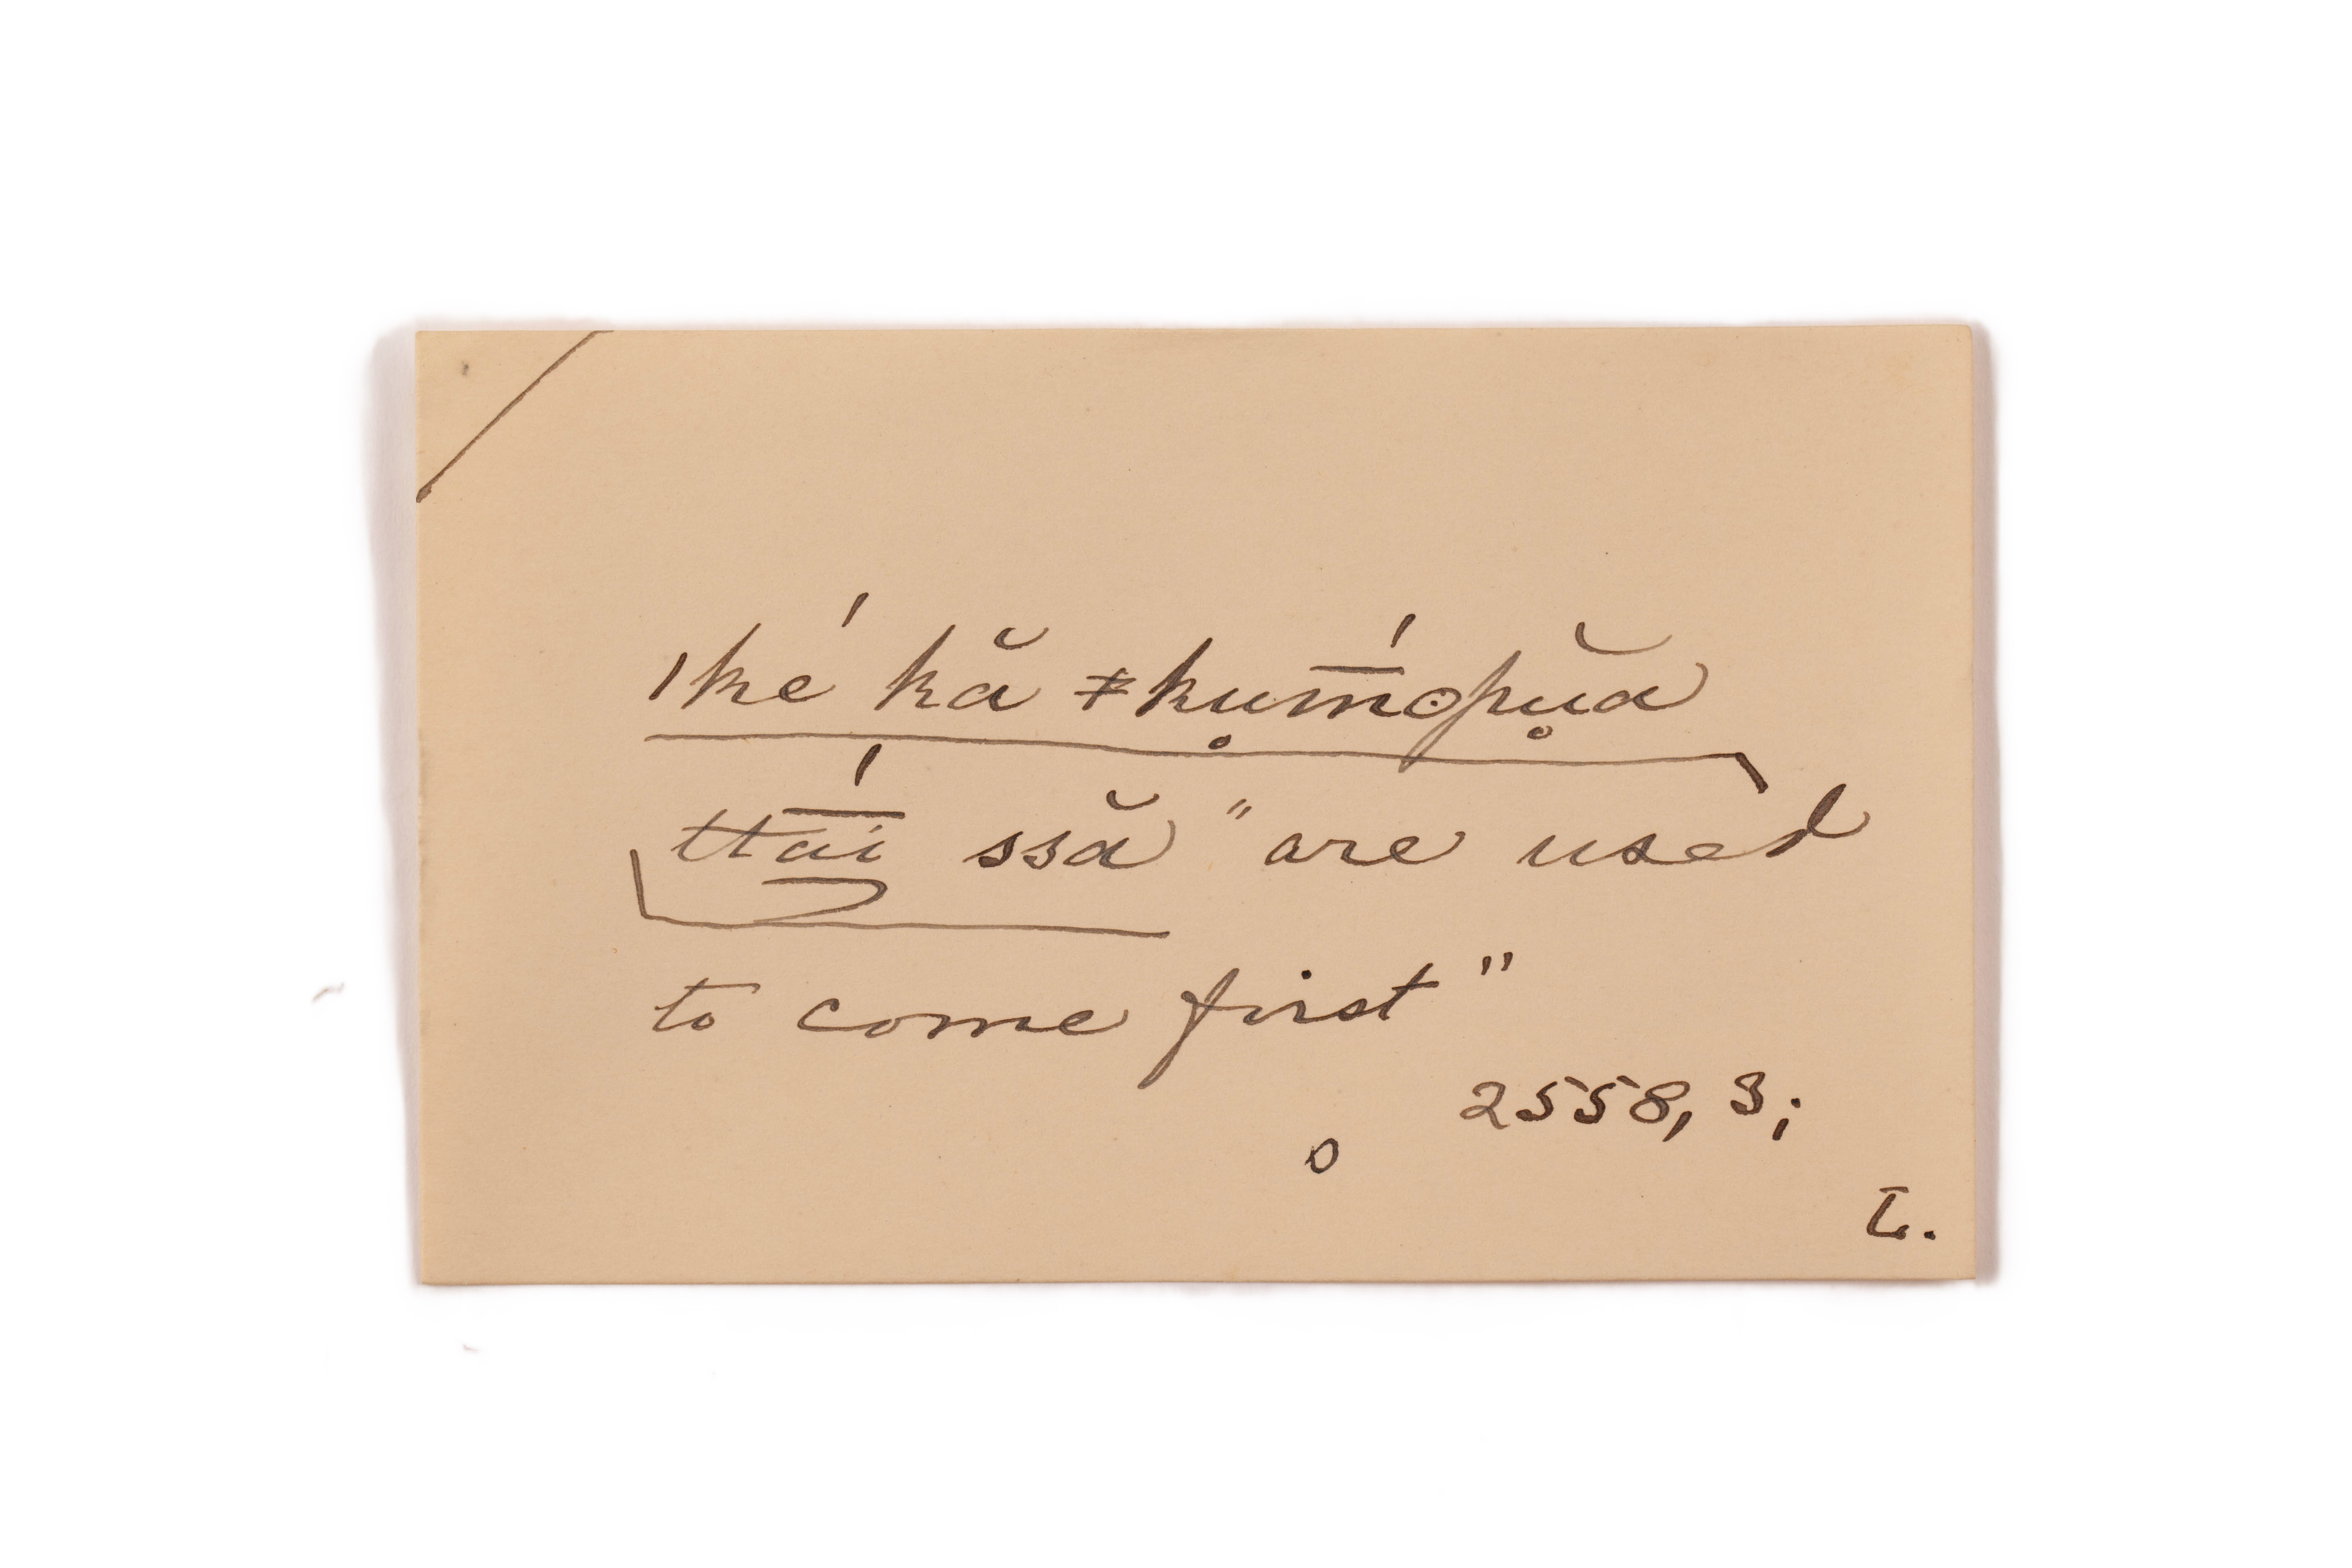 ıké kă ≠kụm̄́opụă
ttā́ĭ ssă "are used
to come first"
2558, 3;
o
L.